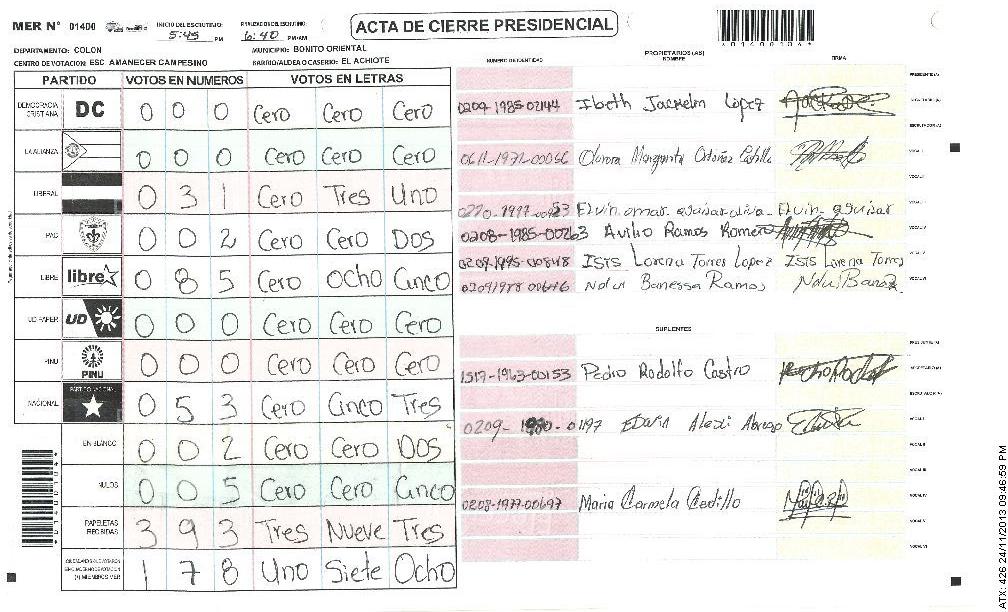 MER Nº 01400
INICIO DEL ESCRUTINIO: 5:45 PM
FINALIZACION DEL ESCRUTINIO: 6:40 PM/AM
ACTA DE CIERRE PRESIDENCIAL
DEPARTAMENTO: COLON
MUNICIPIO: BONITO ORIENTAL
CENTRO DE VOTACION: ESC AMANECER CAMPESINO
BARRIO/ALDEA O CASERIO: EL ACHIOTE
PARTIDO VOTOS EN NUMEROS VOTOS EN LETRAS
DEMOCRACIA CRISTIANA DC 0 0 0 Cero Cero Cero
LA ALIANZA 0 0 0 Cero Cero Cero
LIBERAL 0 3 1 Cero Tres Uno
PAC 0 0 2 Cero Cero Dos
LIBRE libre 0 8 5 Cero Ocho Cinco
UD FAPER UD 0 0 0 Cero Cero Cero
PINU PINU 0 0 0 Cero Cero Cero
NACIONAL PARTIDO NACIONAL 0 5 3 Cero Cinco Tres
EN BLANCO 0 0 2 Cero Cero Dos
NULOS 0 0 5 Cero Cero Cinco
PAPELETAS RECIBIDAS 3 9 3 Tres Nueve Tres
1 7 8 Uno Siete Ocho
NUMERO DE IDENTIDAD
PROPIETARIOS (AS)
NOMBRE
FIRMA
0209-1985-02144 Ibeth Jackelin Lopez
0611-1971-00066 Margarita
Elvin omar
0208-1985-00263 Avilio Ramos Romero
0209-1995-00848 Isis Lorena Torres Lopez Isis Lorena Torres
0209 1988 00646 Banessa Ramos
SUPLENTES
1517-1963-00153 Pedro Rodolfo Castro
Edwin Alexi
0208-1977-00697 Maria Carmela Cedillo
ATX: 426 24/11/2013 09:46:59 PM